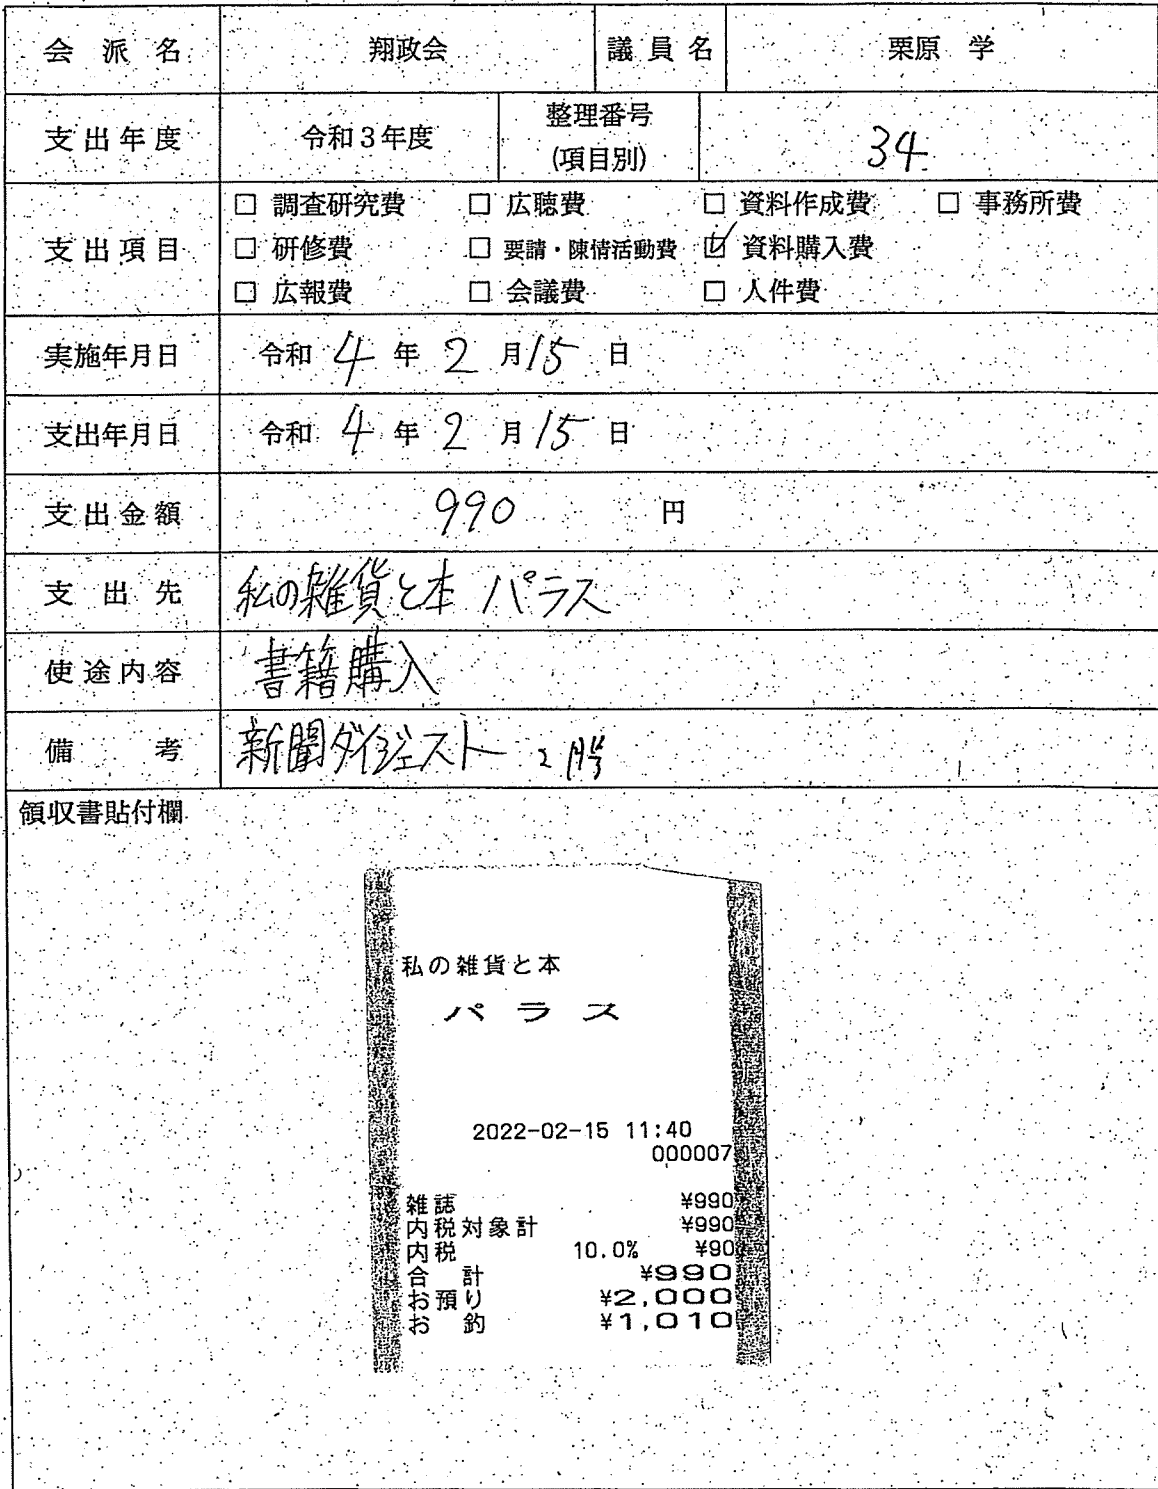 会派名 翔政会 議員名 栗原 学
支出年度 令和3年度 整理番号 (項目別) 34
支出項目
□ 調査研究費 □ 広聴費 □ 資料作成費 □ 事務所費
□ 研修費 □ 要請・陳情活動費 ☑ 資料購入費
□ 広報費 □ 会議費 □ 人件費
実施年月日 令和 4 年 2 月 15 日
支出年月日 令和 4 年 2 月 15 日
支出金額 990 円
支出先 私の雑貨と本 パラス
使途内容 書籍購入
備考 新聞ダイジェスト 2月号
領収書貼付欄
私の雑貨と本
パラス
2022-02-15 11:40
000007
雑誌 ¥990
内税対象計 ¥990
内税 10.0% ¥90
合計 ¥990
お預り ¥2,000
お釣 ¥1,010